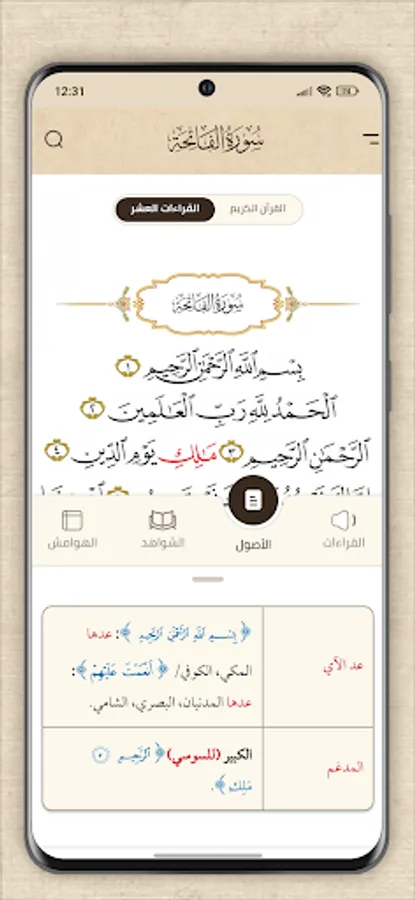 12:31
سُورَةُ الفَاتِحَةِ
القرآن الكريم
القراءات العشر
سُورَةُ الفَاتِحَةِ
بِسْمِ ٱللَّهِ ٱلرَّحْمَٰنِ ٱلرَّحِيمِ ١
ٱلْحَمْدُ لِلَّهِ رَبِّ ٱلْعَٰلَمِينَ ٢
ٱلرَّحْمَٰنِ ٱلرَّحِيمِ ٣ مَٰلِكِ يَوْمِ ٱلدِّينِ ٤
القراءات
الأصول
الشواهد
الهوامش
عد الآي
﴿بِسْمِ ٱللَّهِ ٱلرَّحْمَٰنِ ٱلرَّحِيمِ﴾: عدها
المكي، الكوفي/ ﴿أَنْعَمْتَ عَلَيْهِمْ﴾:
عدها المدنيان، البصري، الشامي.
المدغم
الكبير (للسوسي) ﴿ٱلرَّحِيمِ
مَلِكِ﴾.